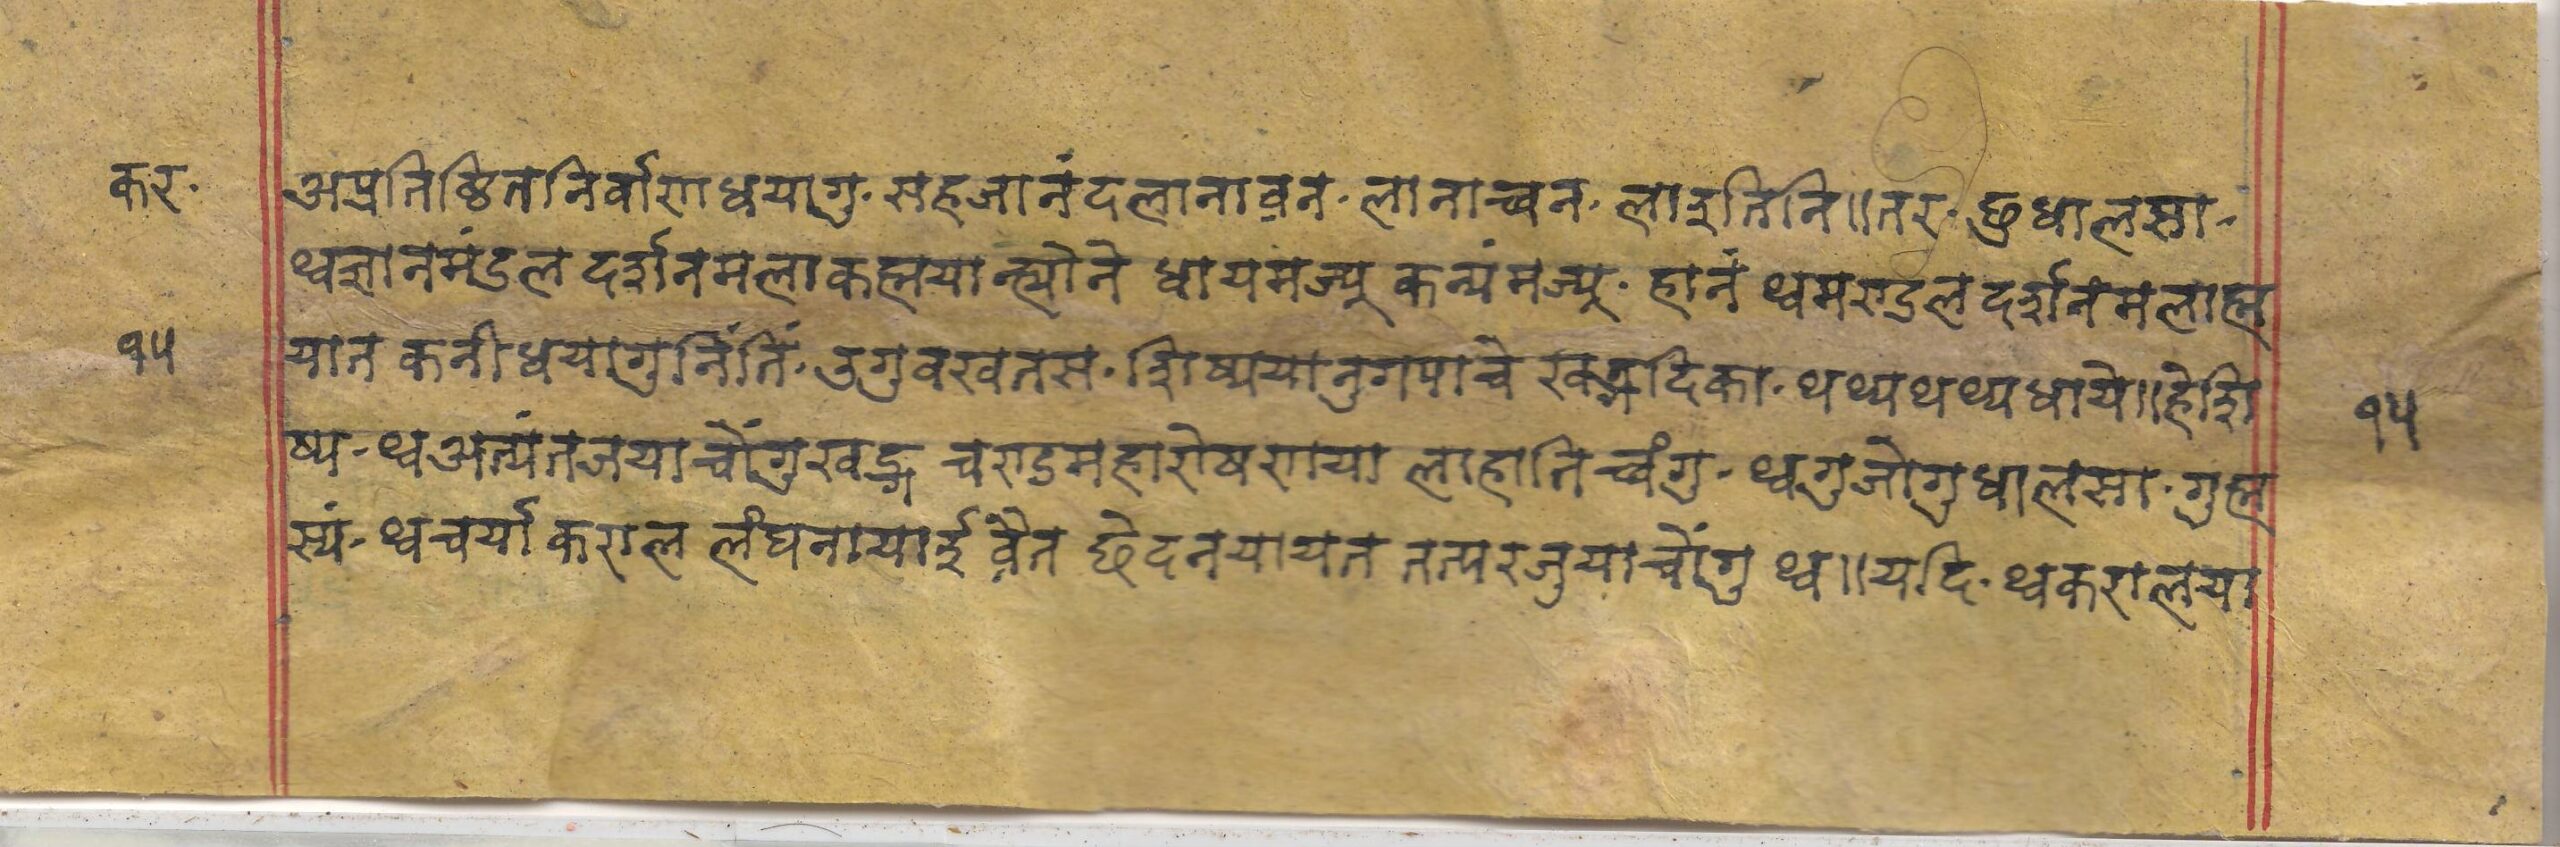 कर. अप्रतिष्ठितनिर्वाणधयागु. सहजानंदलानाव़न. लानाच्वन. लाइतिनि॥तर. छुधालसा-
थ्वज्ञानमंडल दर्शनमलाकह्मयान्ह्यौने धायमज्यू कन्यंमज्यू. हानं थ्वमण्डलदर्शनमलाह्म
१५ यात कनीधयागुनिंतिं. उगुवखतस. शिष्ययानुगपाचे रवड्गदिका. थथ्यथथ्यधाये॥हेशि १५
ष्य-थ्वअत्यंतजयाचोंगुरवड्ग चण्डमहारोषणया लाहातिच्वंगु-थ्वगुजोगुधालसा. गुह्म
स्यं-थ्वचर्याकराल लंघनायाई व़ैत छेदनयायत तत्परजुयाचोंगु थ्व॥यदि. थ्वकरालया